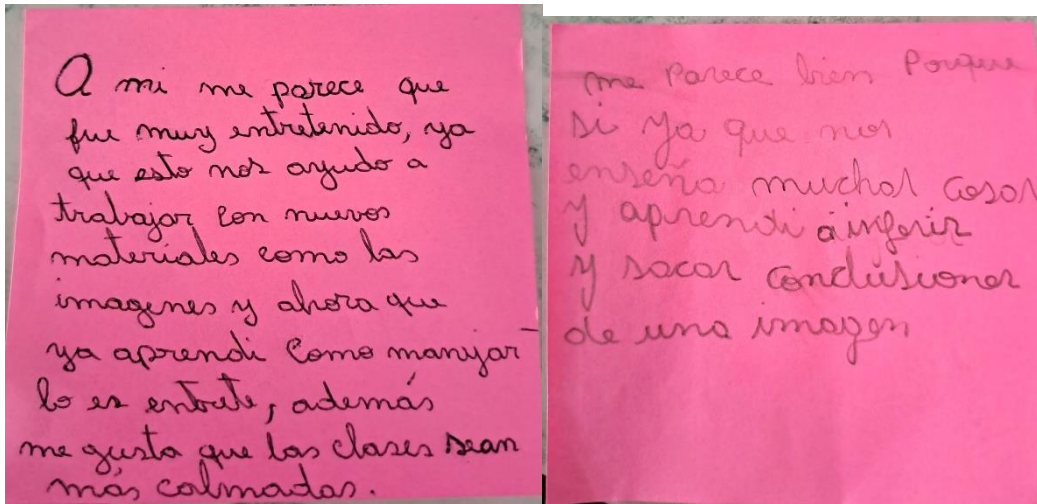 A mi me parece que
fue muy entretenido, ya
que esto nos ayudo a
trabajar con nuevos
materiales como las
imagenes y ahora que
ya aprendi como manejar
lo es entrete, además
me gusta que las clases sean
más calmadas.
me Parece bien Porque
si ya que nos
enseña muchas cosas
y aprendi a inferir
y sacar conclusiones
de una imagen